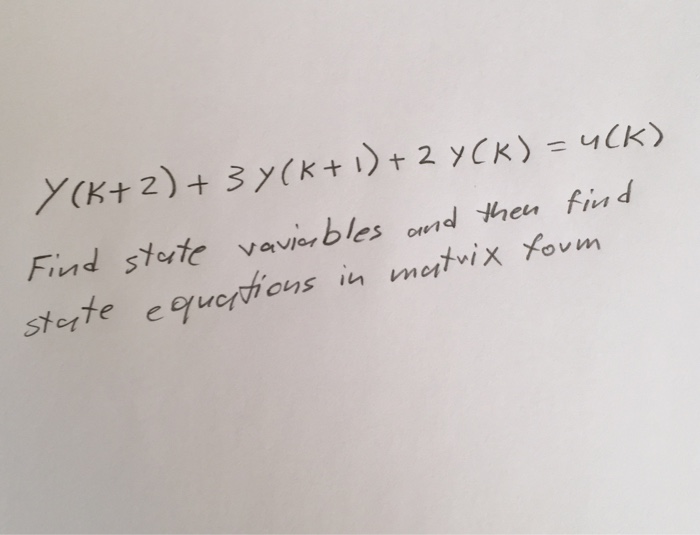 y(k+2) + 3y(k+1) + 2y(k) = u(k)
Find state variables and then find
state equations in matrix form